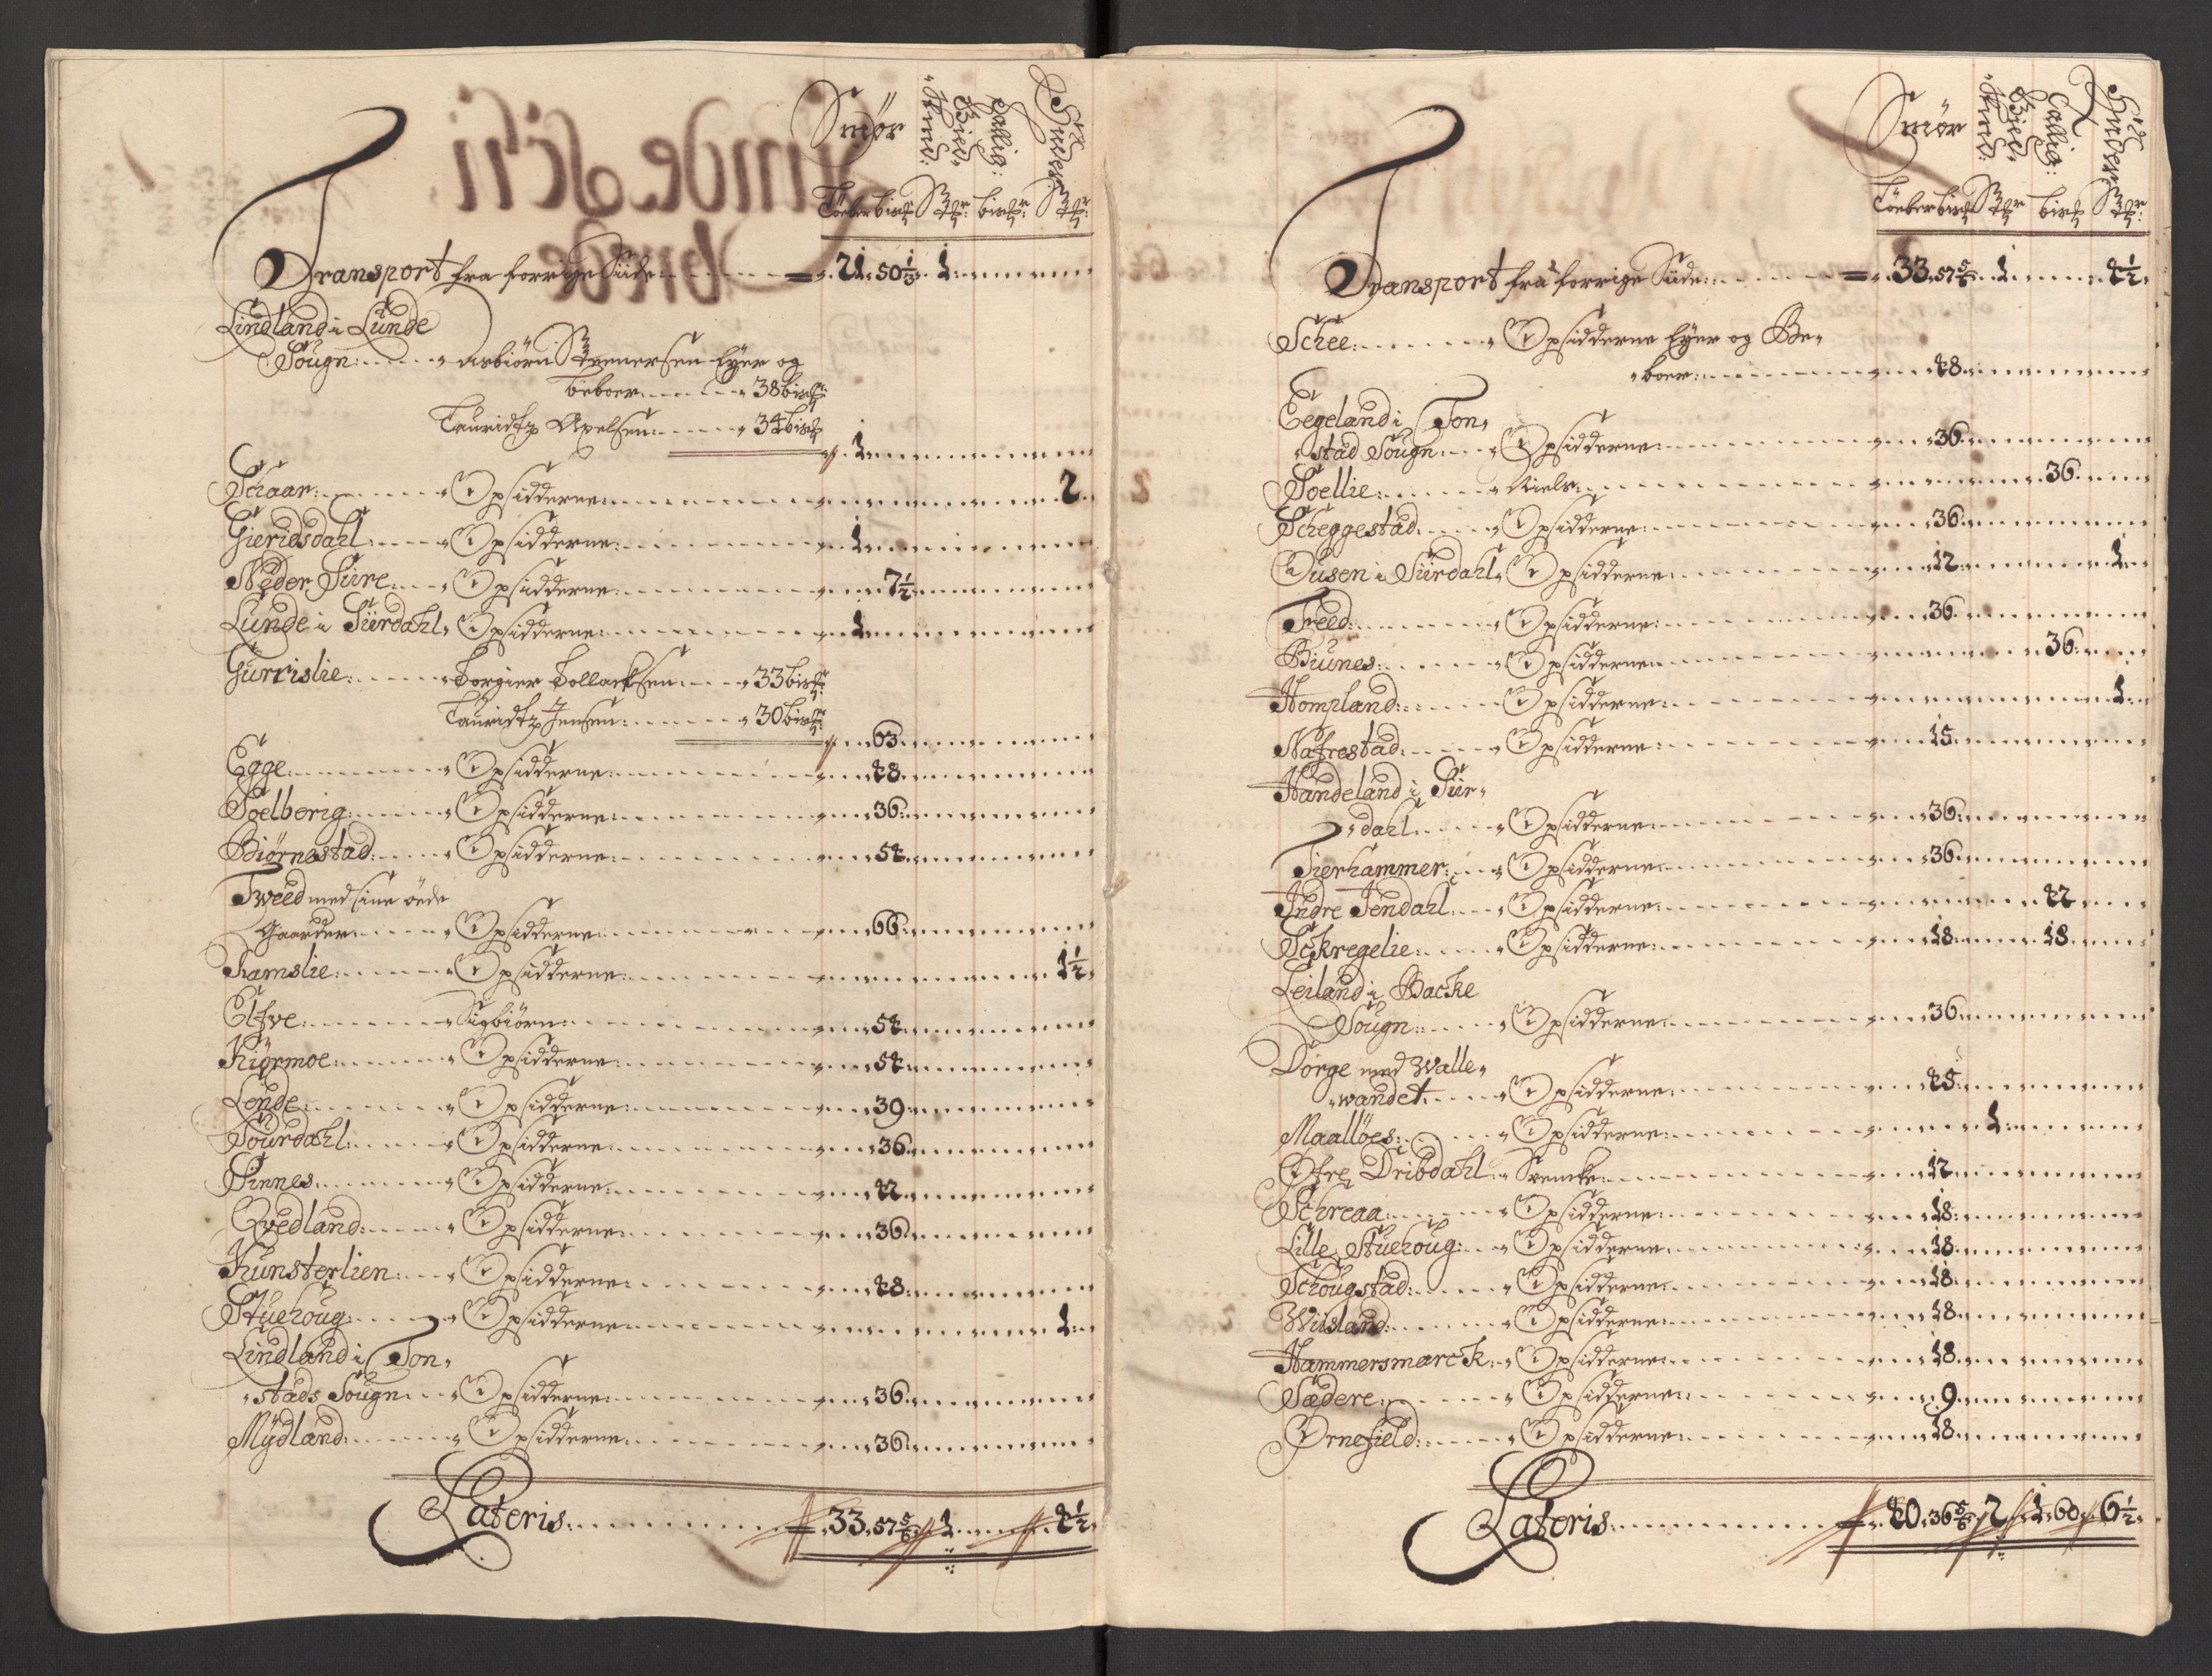 Smør
Hud:
Transport fra forrige Siide: 21. 50 1/3. 1.
Lindland i Lunde
Sougn: Asbiörn Eyer og
beboer 38 bis
Tauridtz Axelsen: 34 bis
1.
Schaar: Opsidderne 2.
Gieridsdahl: Opsidderne: 1.
Neder Siire: Opsidderne 7 1/2
Lunde i Siirdahl Opsidderne: 1.
Gurrislie: Torgier Tollacksen: 33 bis
Tauridtz Jensen: 30 bis
63.
Egge: Opsidderne: 48.
Soelberig: Opsidderne: 36.
Biörnestad: Opsidderne: 54.
Tweed med sine öede
Gaarder: Opsidderne: 66.
Ramslie: Opsidderne: 1 1/2
Elfve: Sigbiörn: 54.
Kiörmoe: Opsidderne: 54.
Lende: Opsidderne: 39.
Sourdahl: Opsidderne: 36.
Sinnes: Opsidderne: 42.
Qvedland: Opsidderne: 36.
Kunsterlien: Opsidderne: 48.
Stuehoug: Opsidderne: 1.
Lindland i Ton-
stads Sougn: Opsidderne: 36.
Mydland: Opsidderne: 36.
Lateris: 33. 57 5/6. 1. 4 1/2
Smør
Transport fra forrige Siide: 33. 57 5/6. 1. 4 1/2
Schee: Opsidderne Eyer og Be-
boer: 48.
Eegeland i Ton-
stad Sougn: Opsidderne: 36.
Soellie: Niels: 36.
Scheggestad: Opsidderne: 36.
Ousen i Siirdahl Opsidderne: 12. 1.
Treed: Opsidderne: 36.
Biunes: Opsidderne 36.
Hompland: Opsidderne: 1.
Nafrestad: Opsidderne: 15.
Handeland i Siir-
dahl: Opsidderne: 36.
Tierhammer: Opsidderne: 36.
Indre Jendahl: Opsidderne: 42
Schregelie: Opsidderne: 18. 18.
Leiland i Backe
Sougn: Opsidderne: 36.
Dorge med Walle-
wandet: Opsidderne: 45.
Maallöes: Opsidderne: 1.
Öfre Dribdahl: 12.
Schreaa: Opsidderne: 18.
Lille Stuehoug: Opsidderne: 18.
Schougstad: Opsidderne: 18.
Wiisland: Opsidderne: 18.
Hammersmarck: Opsidderne: 18.
Sædere: Opsidderne: 9.
Ørnefield: Opsidderne: 18.
Lateris: 40. 36 5/6. 2. 1. 60. 6 1/2